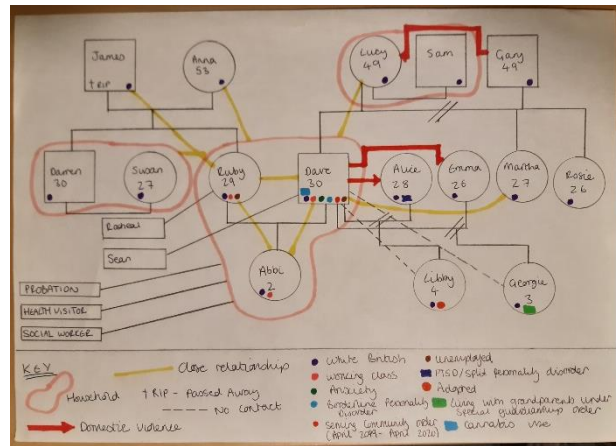 James
† RIP
Anna
53
Lucy
49
Sam
Gary
49
Darren
30
Susan
27
Ruby
29
Dave
30
Alice
28
Emma
26
Martha
27
Rosie
26
Racheal
Sean
Abbi
2
Libby
4
Georgie
3
PROBATION
HEALTH VISITOR
SOCIAL WORKER
KEY
Household
Close relationship
† RIP - Passed Away
NO CONTACT
Domestic Violence
White British
Working class
Anxiety
Borderline Personality Disorder
Serving Community order
(April 2019 - April 2020)
Unemployed
PTSD/Split Personality disorder
Adopted
Living with grandparents under
special guardianship order
Cannabis use